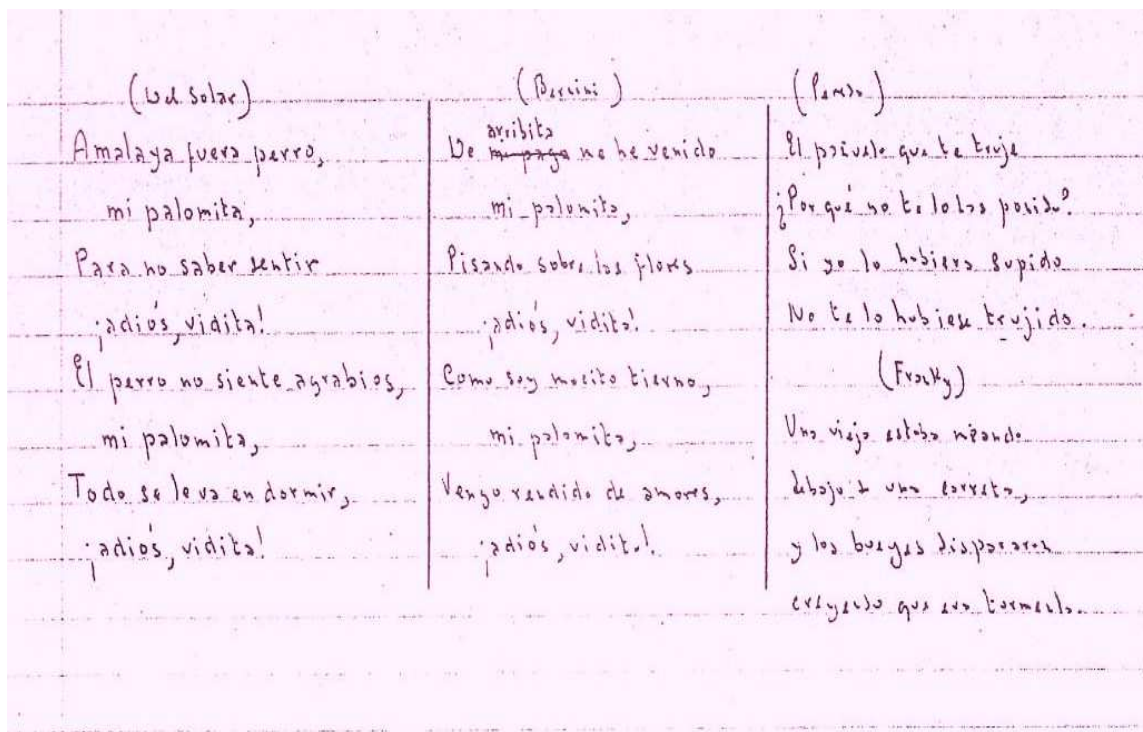 (Del Solar)
Amalaya fuera perro,
mi palomita,
Para no saber sentir
¡adiós, vidita!
El perro no siente agrabios,
mi palomita,
Todo se le va en dormir,
¡adiós, vidita!
(Bernini)
arribita
De mi pago no he venido
mi palomita,
Pisando sobre las flores
¡adiós, vidita!
Como soy mocito tierno,
mi palomita,
Vengo rendido de amores,
¡adiós, vidita!
El pañuelo que te truje
¿Por qué no te lo has ponido?
Si yo lo hubiera supido
No te lo hubiese trujido.
(Franky)
Una vieja estaba meando
debajo de una carreta,
y los bueyes dispararon
creyendo que era tormenta.